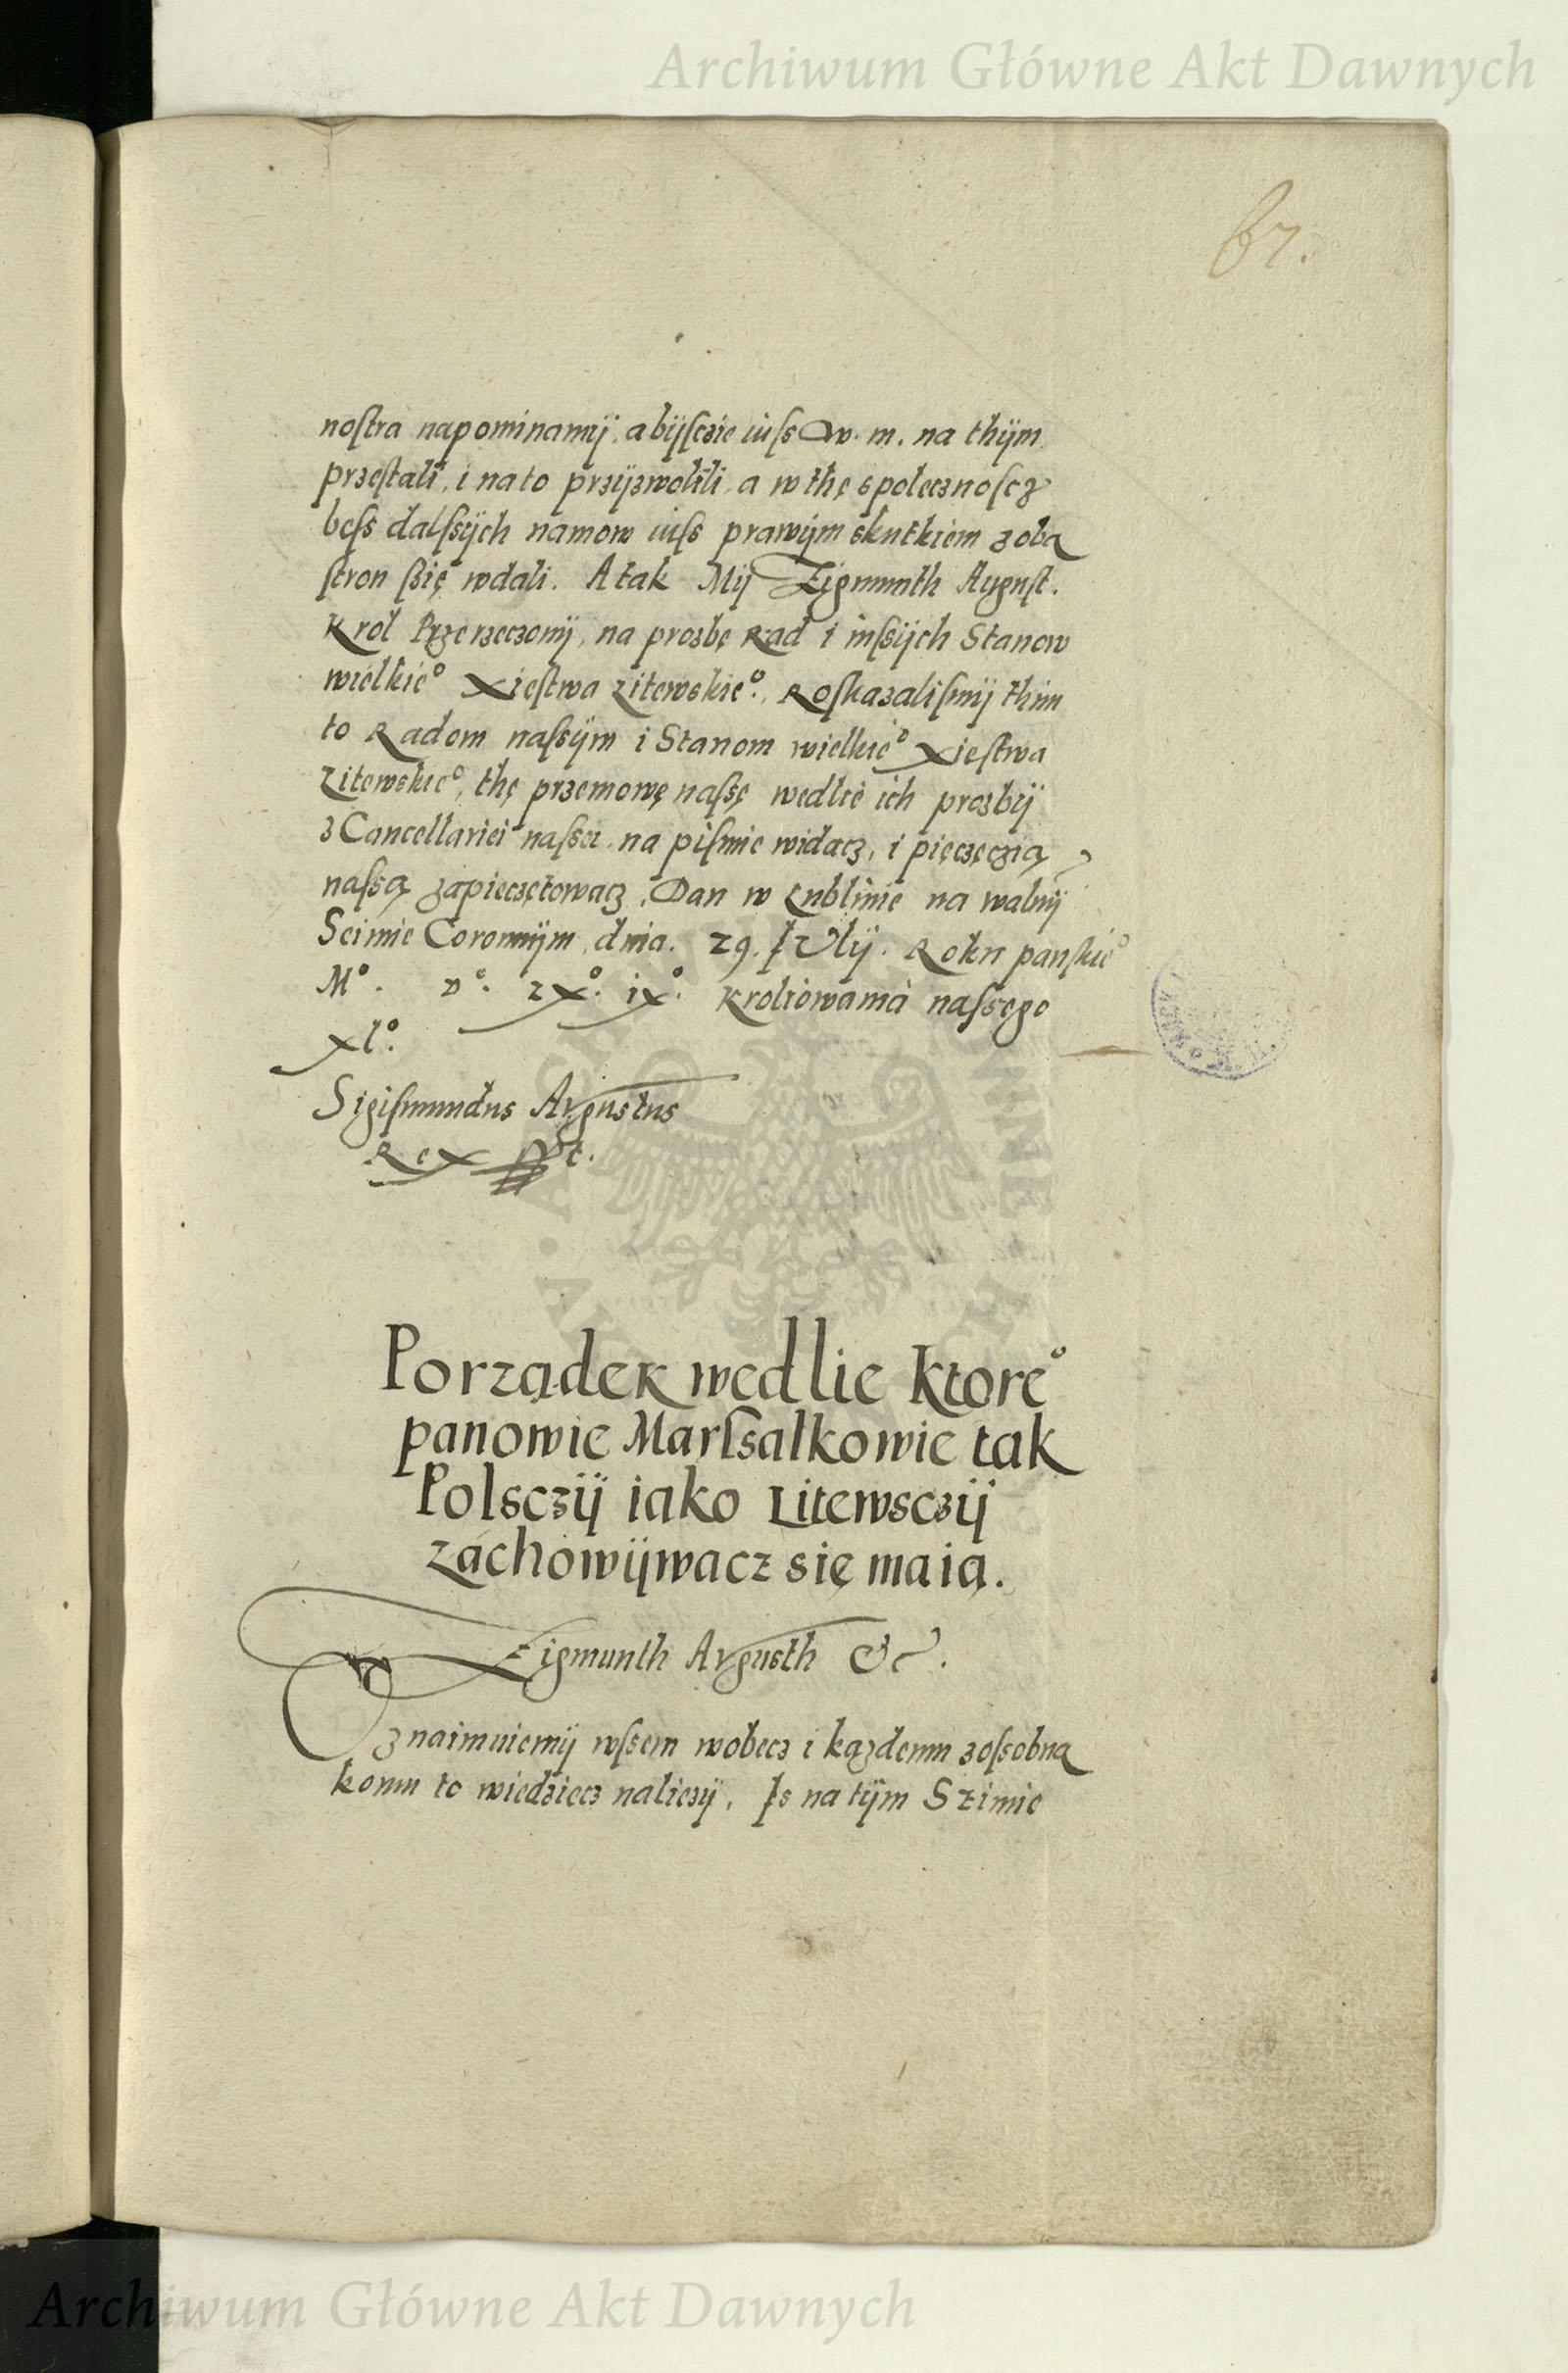 Archiwum Główne Akt Dawnych
67.
noſtra napominamÿ, abÿſczie iuſs w. m. na thÿm
przeſtali, i na to przÿzwolili, a w thę społecznoſcz
beſs dalſsÿch namow iuſs prawÿm skutkiem z obą
ſtron ſsię wdali. A tak Mÿ Zÿgmunth Auguſt.
Krol Przerzeczonÿ, na prozbę Rad i inſsÿch Stanow
wielkie° Xieſtwa Litewskie°. Roſkazaliſmÿ thim
to Radom naſsÿm i Stanom wielkie° Xieſtwa
Litewskie°, thę przemowę naſsę wedlie ich prozbÿ
z Cancellariei naſsei na piſmie widacz, i pięczęczią
naſsą zapieczętowacz. Dan w Lublinie na walnÿ
Seimie Coronnÿm, dnia. 29. IVlÿ. Roku panſkie°
M°. v°. lx°. ix°. Kroliowania naſsego
xl°.
Sigiſmundus Augustus
Rex ſſt.
Porządek wedlie Ktore°
panowie Marſsałkowie tak
Polsczÿ iako Litewsczÿ
zachowÿwacz się maią.
Zigmunth Augusth &c.
Oznaimuiemÿ wſsem wobecz i każdemu zoſsobna
komu to wiedziecz naliezÿ, Is na tÿm Szimie
Archiwum Główne Akt Dawnych